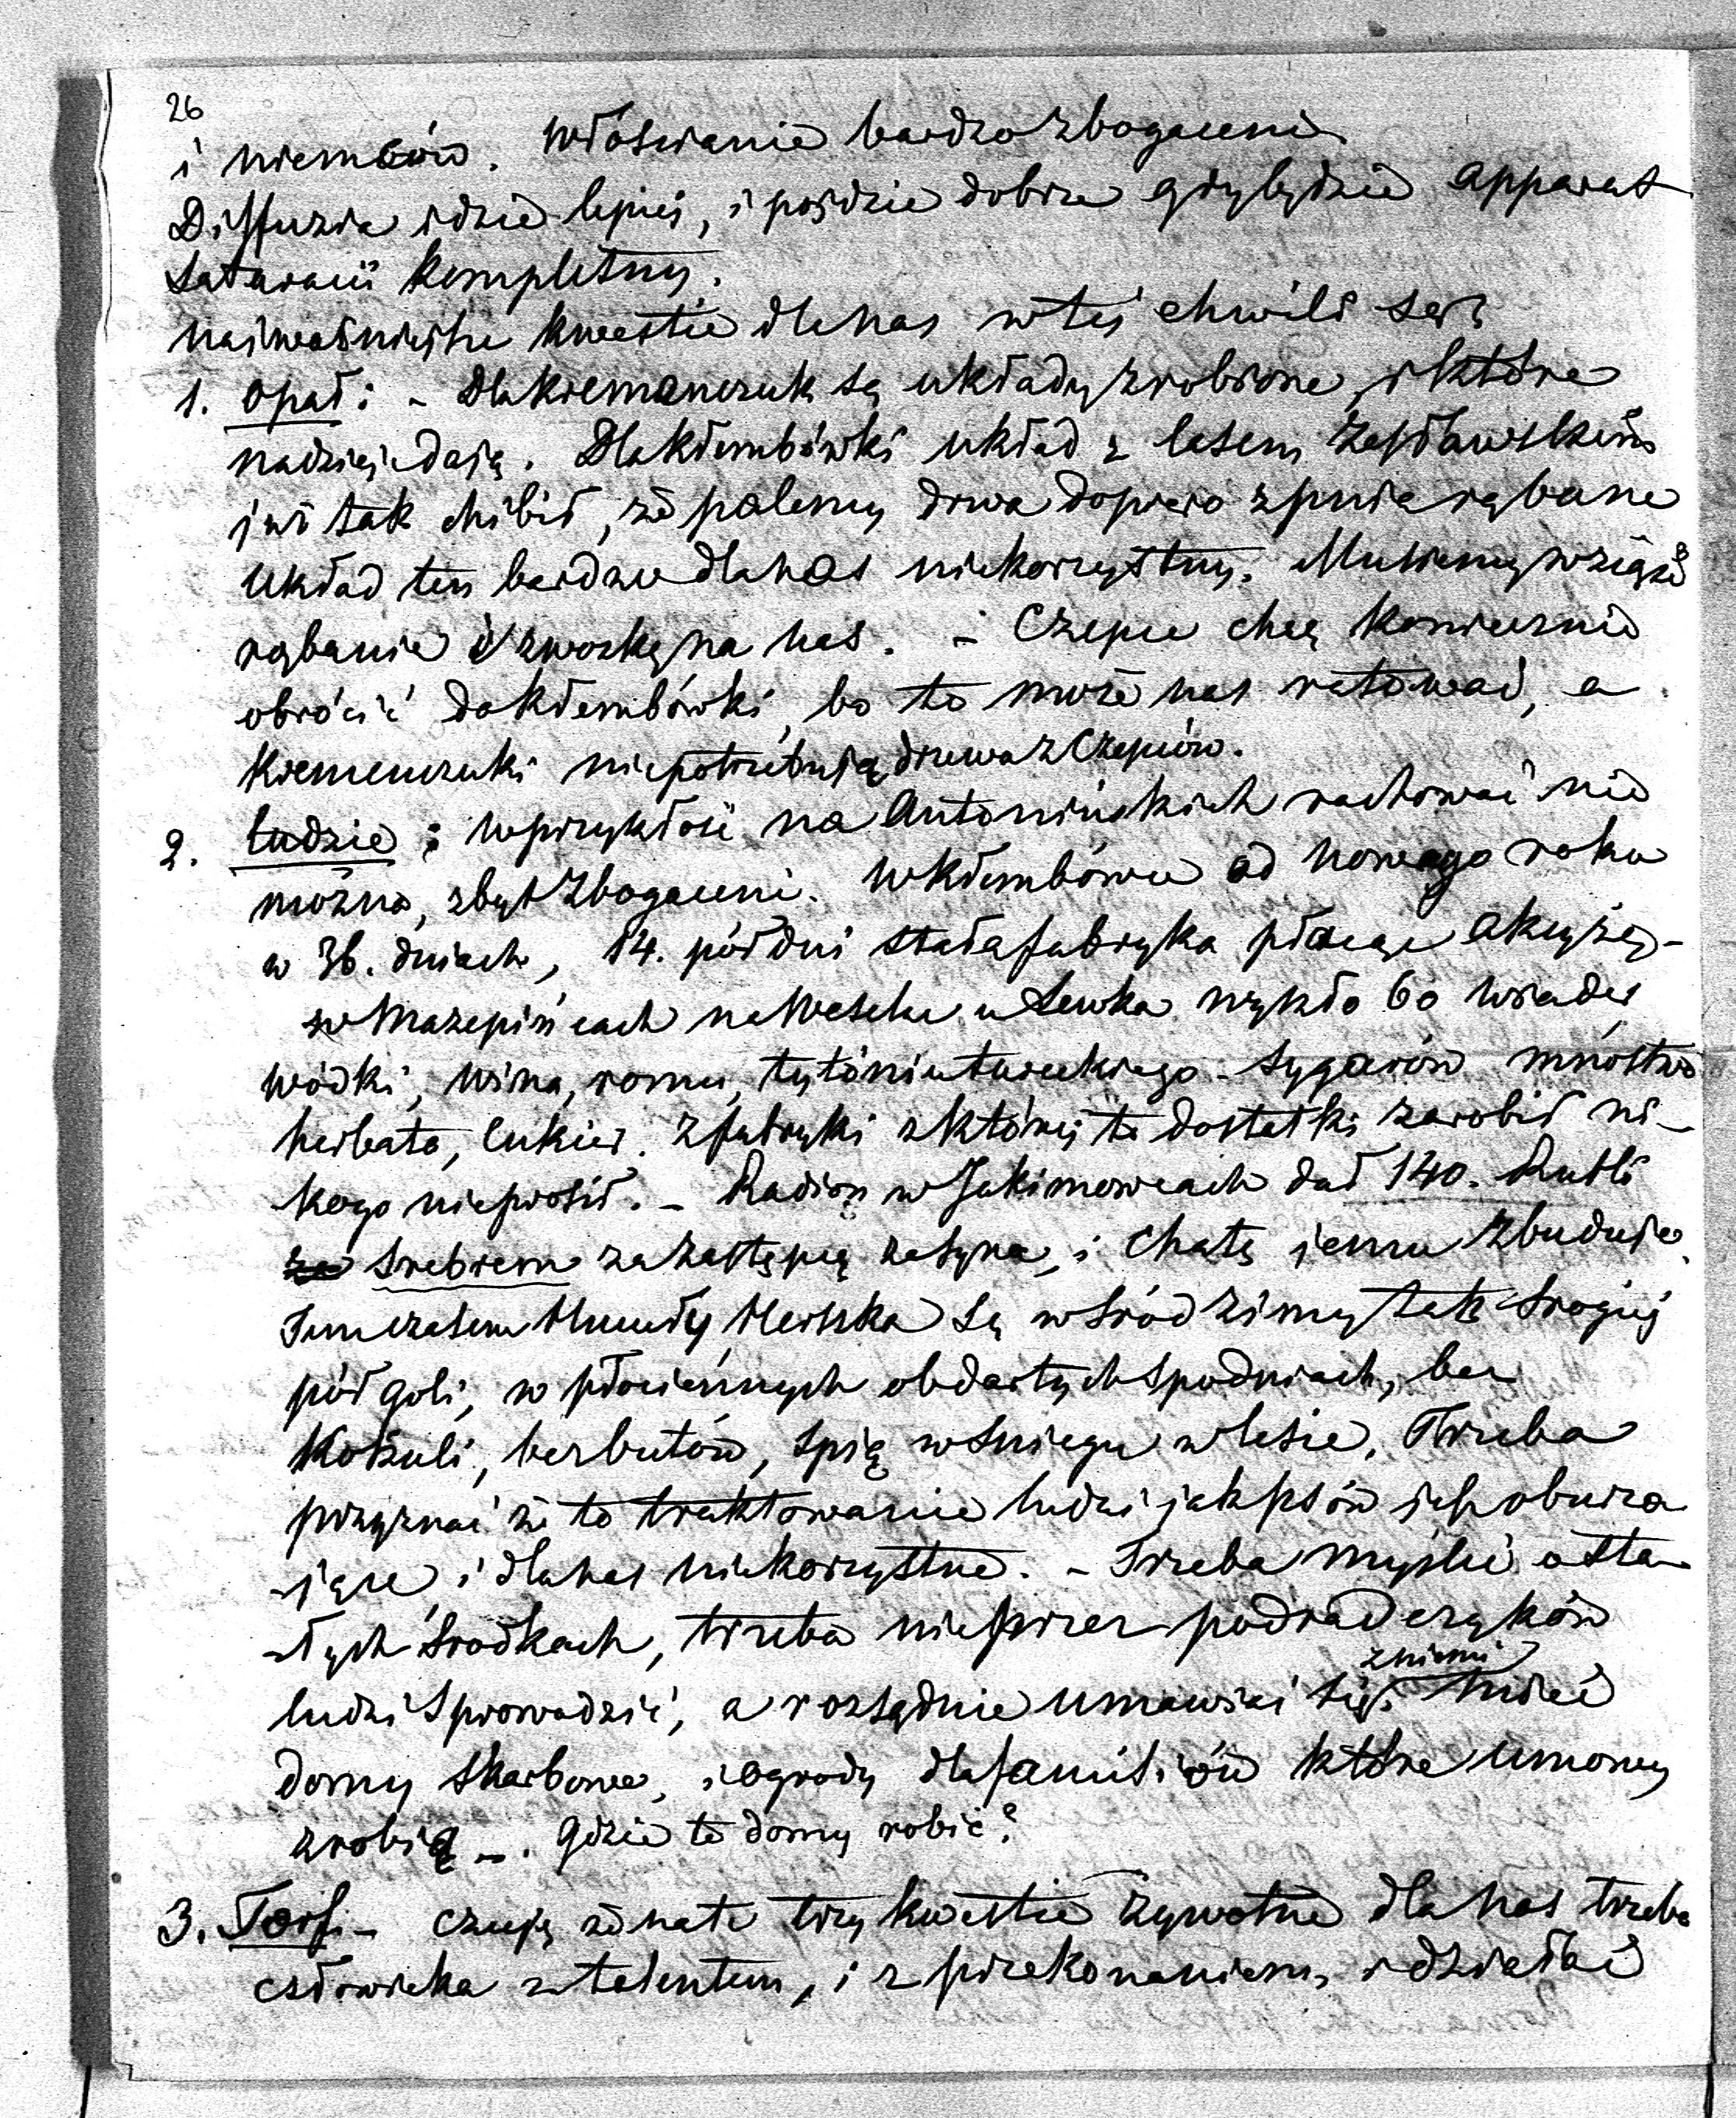 26
i niemców. Włościanie bardzo zbogaceni
Diffuzia idzie lepiej, i pojdzie dobrze gdy będzie apparat
Saturacii kompletny.
najważniejsze kwestie dla nas w tej chwili są:
1. Opał: - Dla Kremenczuk są układy zrobione, i które
nadzieje dają. Dla Kłembówki układ z lasem Zasławskim
już tak chibił, że palemy drwa dopiero z pnia rąbane
Układ ten bardzo dla nas niekorzystny. Musiemy wziąść
rąbanie i zwózkę na nas. - Czepce chcę koniecznie
obrócić do Kłembówki, bo to może nas ratować, a
Kremenczuki niepotrzebują drzewa z Czepców.
2. Ludzie: w przyszłość na Antonińskich rachować nie
można, zbyt zbogaceni. W Kłembówce od nowego roku
w 36. dniach, 14. pół dni stała fabryka płacąc akcyzę -
w Mazepińcach na Weselu u Lewka wyszło 60 wiader
wódki, wina, romu, tytóniu tureckiego - sygarów mnóstwo
herbata, cukier. z fabryki z której te dostatki zarobił ni-
kogo nieprosił. - Radion w Jakimowcach dał 140. Rubli
srebrem za zastępcę za syna, i chatę jemu zbuduje.
Tymczasem Herszka są wśród zimy tak srogiej
pół goli, w płóciennych obdartych spodniach, bez
Koszuli, bez butów, spią w śniegu w lesie. Trzeba
przyznać że to traktowanie ludzi jak psów jest oburza
-jące, i dla nas niekorzystne. - Trzeba myśleć o sta-
-łych środkach, trzeba nieprzez podradczyków
ludzi sprowadzić, a rozsądnie umawiać się z niemi mieć
domy skarbowe, i ogrody dla familiów które umowy
zrobią -. Gdzie te domy robić?
3. Torf. - Czuję że na te trzy kwestie żywotne dla nas trzeba
człowieka z talentem, i z przekonaniem, i działać